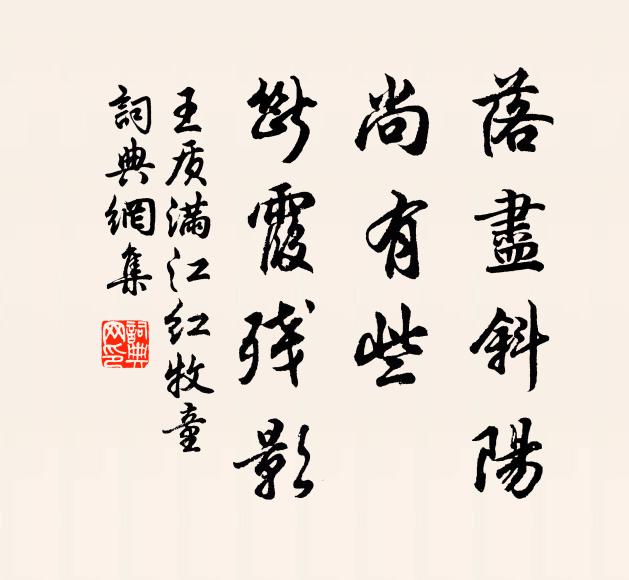 落盡斜陽
尚有些
斷霞殘影
王质满江红牧童
詞典網集
詞典網印